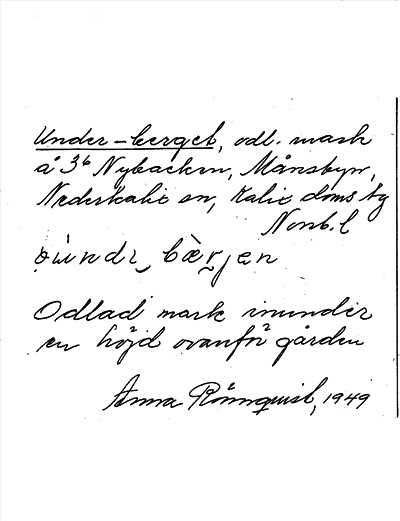 Under-berget, odl. mark
å 3⁶ Nybacken, Månsbyn,
Nederkalix sn, Kalix doms tg
Norrb. l
Odlad mark inunder
en höjd ovanför gården
Anna Rönnquist, 1949